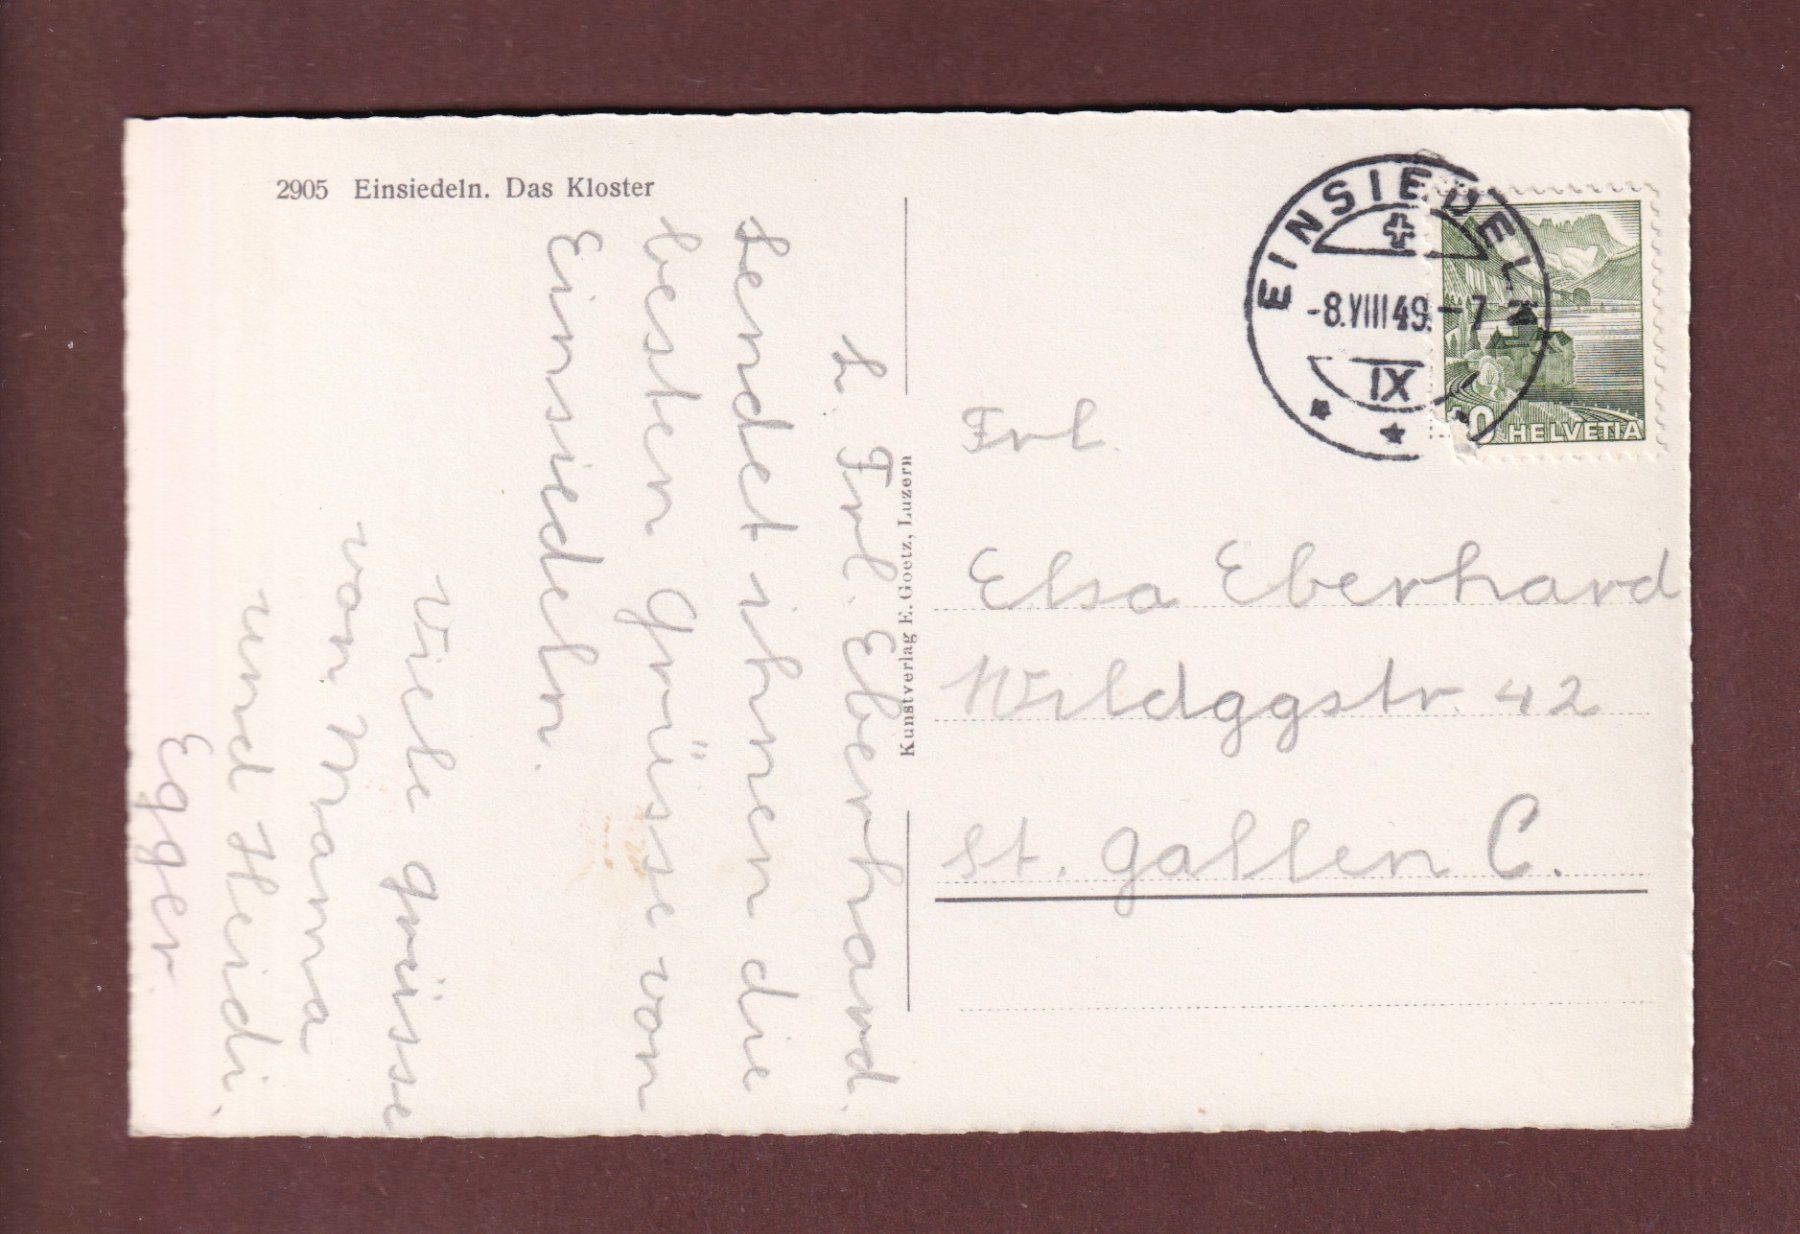 2905 Einsiedeln. Das Kloster
L. Frl. Eberhard.
Sendet ihnen die
besten Grüsse von
Einsiedeln.
Viele grüsse
von Mama
und Heidi.
Egger.
Kunstverlag E. Goetz, Luzern
EINSIEDELN
-8.VIII 49.-7
IX
10 HELVETIA
Frl.
Elsa Eberhard
Wildggstr. 42
St. Gallen C.